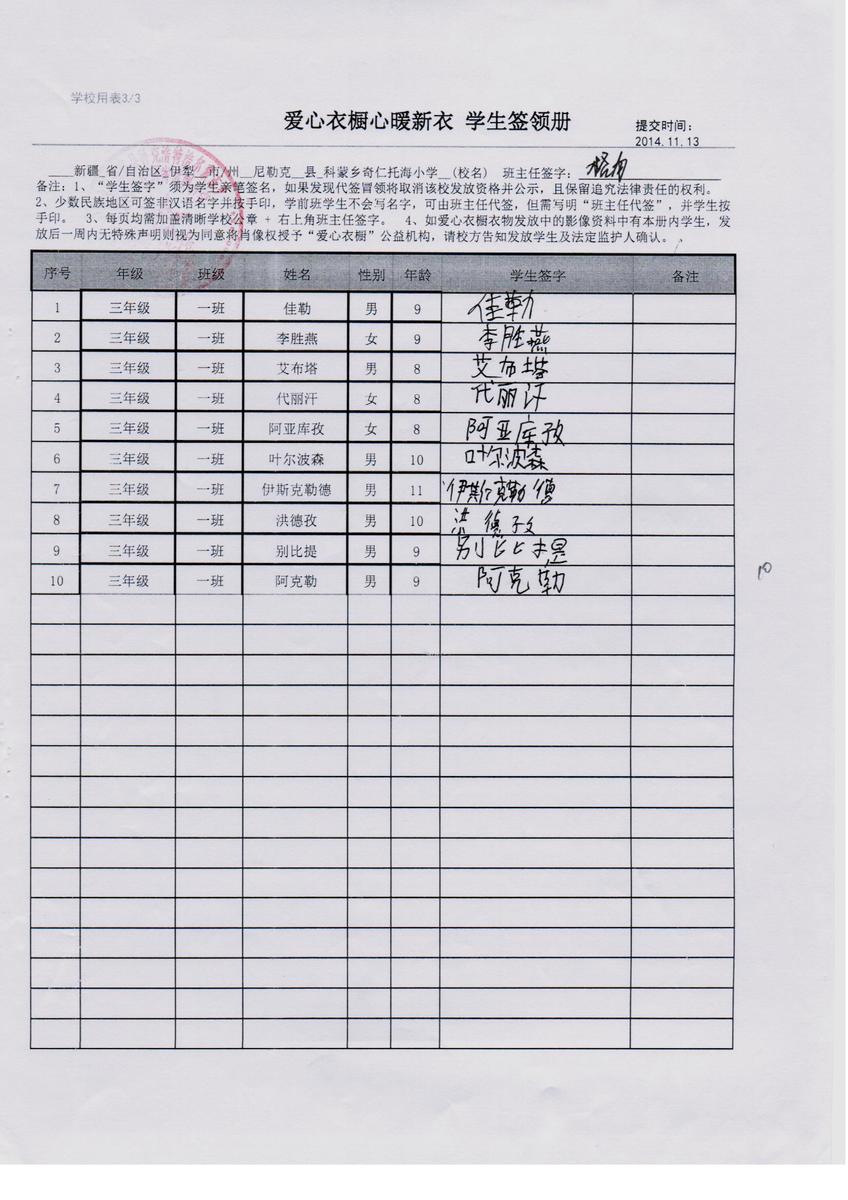 学校用表3/3
爱心衣橱心暖新衣 学生签领册
提交时间:
2014.11.13
____新疆_省/自治区_伊犁__市/州__尼勒克__县_科蒙乡奇仁托海小学__(校名) 班主任签字:
备注:1、“学生签字”须为学生亲笔签名,如果发现代签冒领将取消该校发放资格并公示,且保留追究法律责任的权利。
2、少数民族地区可签非汉语名字并按手印,学前班学生不会写名字,可由班主任代签,但需写明“班主任代签”,并学生按
手印。 3、每页均需加盖清晰学校公章 + 右上角班主任签字。 4、如爱心衣橱衣物发放中的影像资料中有本册内学生,发
放后一周内无特殊声明则视为同意将肖像权授予“爱心衣橱”公益机构,请校方告知发放学生及法定监护人确认。
序号 年级 班级 姓名 性别 年龄 学生签字 备注
1 三年级 一班 佳勒 男 9 佳勒
2 三年级 一班 李胜燕 女 9 李胜燕
3 三年级 一班 艾布塔 男 8 艾布塔
4 三年级 一班 代丽汗 女 8 代丽汗
5 三年级 一班 阿亚库孜 女 8 阿亚库孜
6 三年级 一班 叶尔波森 男 10 叶尔波森
7 三年级 一班 伊斯克勒德 男 11 伊斯克勒德
8 三年级 一班 洪德孜 男 10 洪德孜
9 三年级 一班 别比提 男 9 别比提
10 三年级 一班 阿克勒 男 9 阿克勒
10